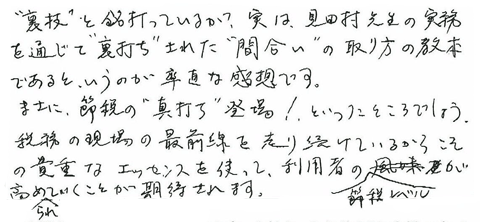 "裏技"と銘打っているが?、実は、見田村先生の実務
を通じて"裏打ち"された"間合い"の取り方の教本
であるというのが率直な感想です。
まさに、節税の"真打ち"登場!、といったところでしょう。
税務の現場の最前線を走り続けているからこそ
の貴重なエッセンスを使って、利用者の節税レベルが
高められていくことが期待されます。